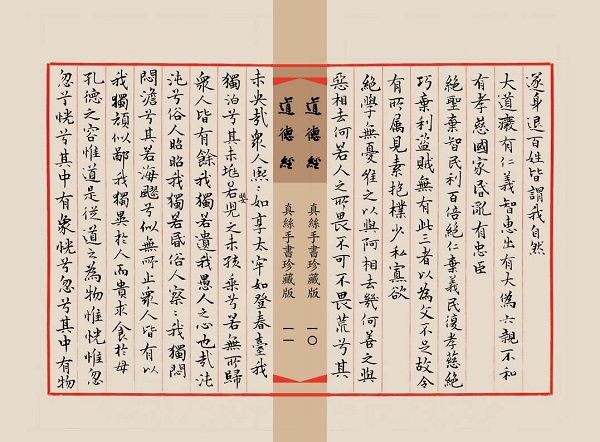 遂身退百姓皆謂我自然
大道癈有仁義智惠出有大偽六親不和
有孝慈國家昏亂有忠臣
絕聖棄智民利百倍絕仁棄義民復孝慈絕
巧棄利盜賊無有此三者以為文不足故令
有所属見素抱樸少私寡欲
絕學無憂唯之以與阿相去幾何善之與
惡相去何若人之所畏不可不畏荒兮其
道德經 真絲手書珍藏版 一〇
道德經 真絲手書珍藏版 一一
未央哉衆人熙〻如享太牢如登春臺我
獨泊兮其未兆若嬰兒之未孩乘兮若無所歸
衆人皆有餘我獨若遺我愚人之心也哉沌
沌兮俗人昭昭我獨若昏俗人察〻我獨悶
悶澹兮其若海飂兮似無所止衆人皆有以
我獨頑似鄙我獨異於人而貴求食於母
孔德之容惟道是從道之為物惟恍惟忽
忽兮恍兮其中有象恍兮忽兮其中有物